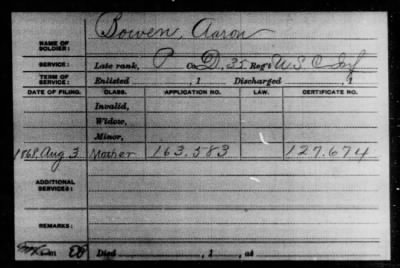 Bowen, Aaron
NAME OF SOLDIER:
SERVICE: Late rank, P Co. D, 35 Reg't U.S.C. Inf
TERM OF SERVICE: Enlisted , 1 Discharged , 1
DATE OF FILING. CLASS. APPLICATION NO. LAW. CERTIFICATE NO.
Invalid,
Widow,
Minor,
1868, Aug 3 Mother 163.583 127.674
ADDITIONAL SERVICES:
REMARKS:
Died , 1 , at